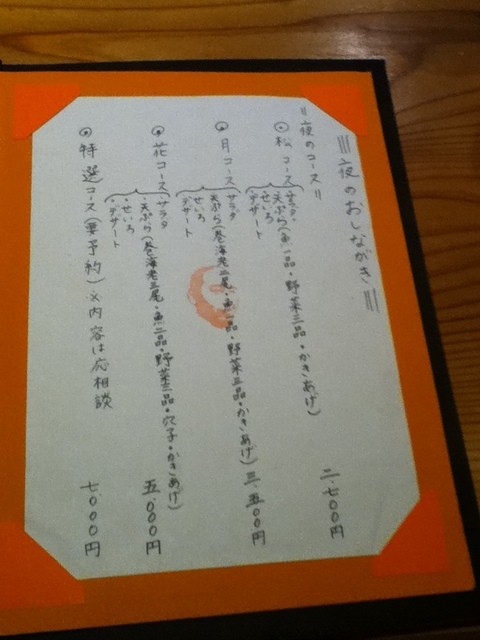 夜のおしながき
〃夜のコース〃
◎松コース
サラダ
・天ぷら(魚一品・野菜三品・かきあげ)
・せいろ
・デザート
二.七〇〇円
◎月コース
サラダ
天ぷら(巻海老二尾・魚一品・野菜三品・かきあげ)
・せいろ
・デザート
三.五〇〇円
◎花コース
サラダ
・天ぷら(巻海老三尾・魚二品・野菜三品・穴子・かきあげ)
・せいろ
・デザート
五.〇〇〇円
◎特選コース(要予約)※内容は応相談
七.〇〇〇円